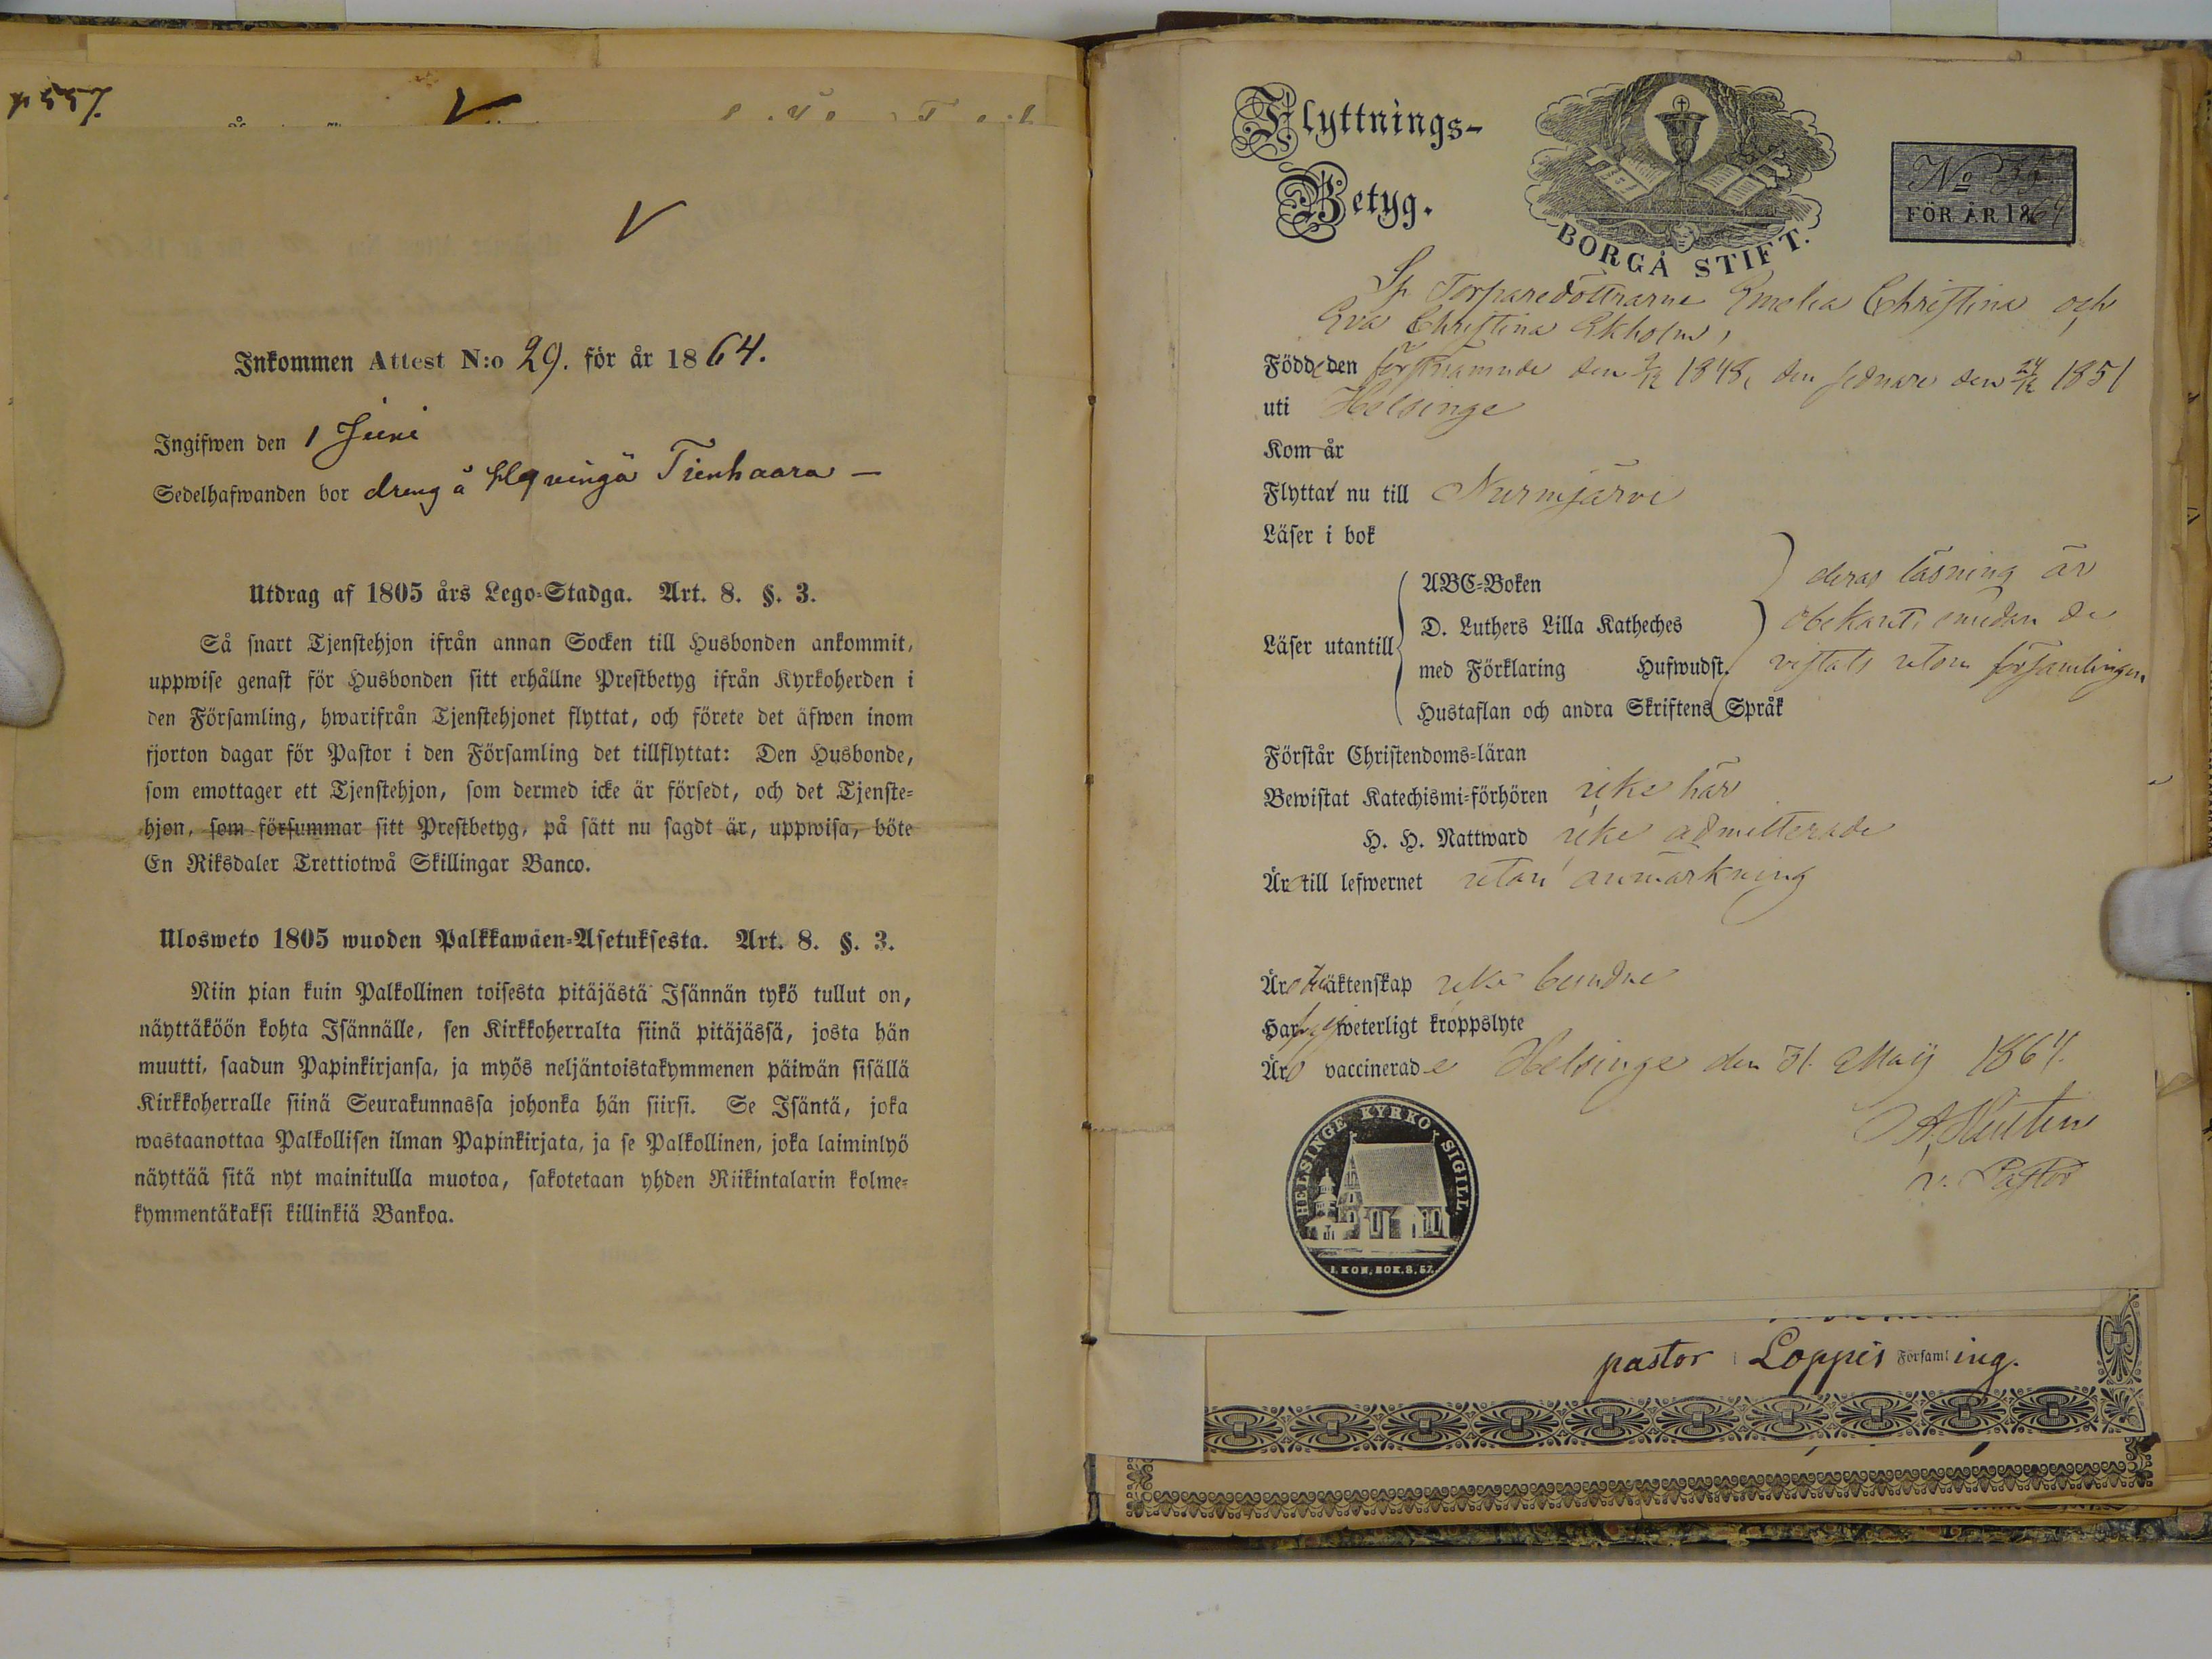 p 557.
Inkommen Attest N:o 29. för år 1864.
Ingifwen den 1 Juni
Sedelhafwanden bor dreng å Hyvingä Tienhaara —
Utdrag af 1805 års Lego-Stadga. Art. 8. §. 3.
Så snart Tjenstehjon ifrån annan Socken till Husbonden ankommit,
uppwise genast för Husbonden sitt erhållne Prestbetyg ifrån Kyrkoherden i
den Församling, hwarifrån Tjenstehjonet flyttat, och förete det äfwen inom
fjorton dagar för Pastor i den Församling det tillflyttat: Den Husbonde,
som emottager ett Tjenstehjon, som dermed icke är försedt, och det Tjenste-
hjon, som försummar sitt Prestbetyg, på sätt nu sagdt är, uppwisa, böte
En Riksdaler Trettiotwå Skillingar Banco.
Ulosweto 1805 wuoden Palkkawäen-Asetuksesta. Art. 8. §. 3.
Niin pian kuin Palkollinen toisesta pitäjästä Isännän tykö tullut on,
näyttäköön kohta Isännälle, sen Kirkkoherralta siinä pitäjässä, josta hän
muutti, saadun Papinkirjansa, ja myös neljäntoistakymmenen päiwän sisällä
Kirkkoherralle siinä Seurakunnassa johonka hän siirsi. Se Isäntä, joka
wastaanottaa Palkollisen ilman Papinkirjata, ja se Palkollinen, joka laiminlyö
näyttää sitä nyt mainitulla muotoa, sakotetaan yhden Riikintalarin kolme-
kymmentäkaksi killinkiä Bankoa.
Flyttnings-
Betyg.
BORGÅ STIFT.
No 35
FÖR ÅR 1864
Sp Torparedöttrarne Emelia Christina och
Eva Christina Ekholm,
Födde den förstnämnde den 1848, den sednare den 24/12 1851
uti Helsinge
Kom år
Flyttar nu till Nurmijärvi
Läser i bok
Läser utantill
ABC-Boken
D. Luthers Lilla Katheches
med Förklaring Hufwudst.
Hustaflan och andra Skriftens Språk
deras läsning är
obekant, emedan de
vistats utom församlingen
Förstår Christendoms-läran
Bewistat Katechismi-förhören icke här
H. H. Nattward icke admitterade
Äro till lefwernet utan anmärkning
Äro till äktenskap icke bundne
Hafva ej weterligt kroppslyte
Äro vaccinerade Helsinge den 31. Maij 1864.
v. Pastor
HELSINGE KYRKO SIGILL.
1. KON. BOK. 8. 57.
pastor i Loppis Församling.